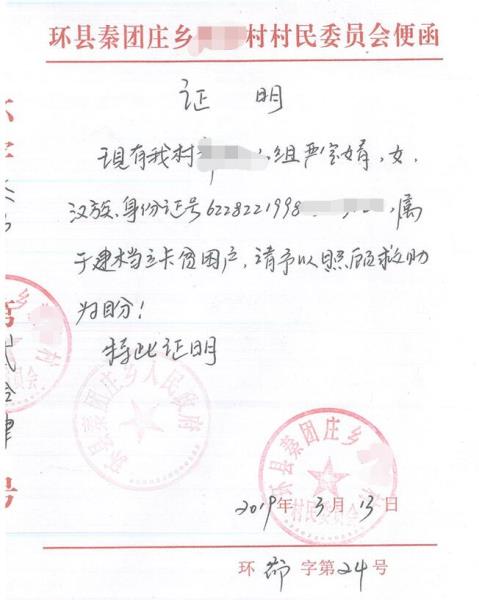 环县秦团庄乡 村村民委员会便函
证 明
现有我村 组严宝娟,女,
汉族,身份证号6228221998 ,属
于建档立卡贫困户,请予以照顾救助
为盼!
特此证明
环县秦团庄乡人民政府
环县秦团庄乡
村民委员会
2019年3月13日
环 字第24号